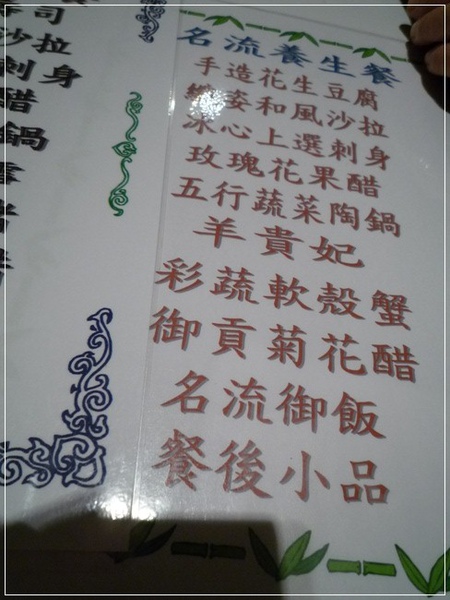 名流養生餐
手造花生豆腐
纖姿和風沙拉
冰心上選刺身
玫瑰花果醋
五行蔬菜陶鍋
羊貴妃
彩蔬軟殼蟹
御貢菊花醋
名流御飯
餐後小品
司
沙拉
刺身
醋
鍋